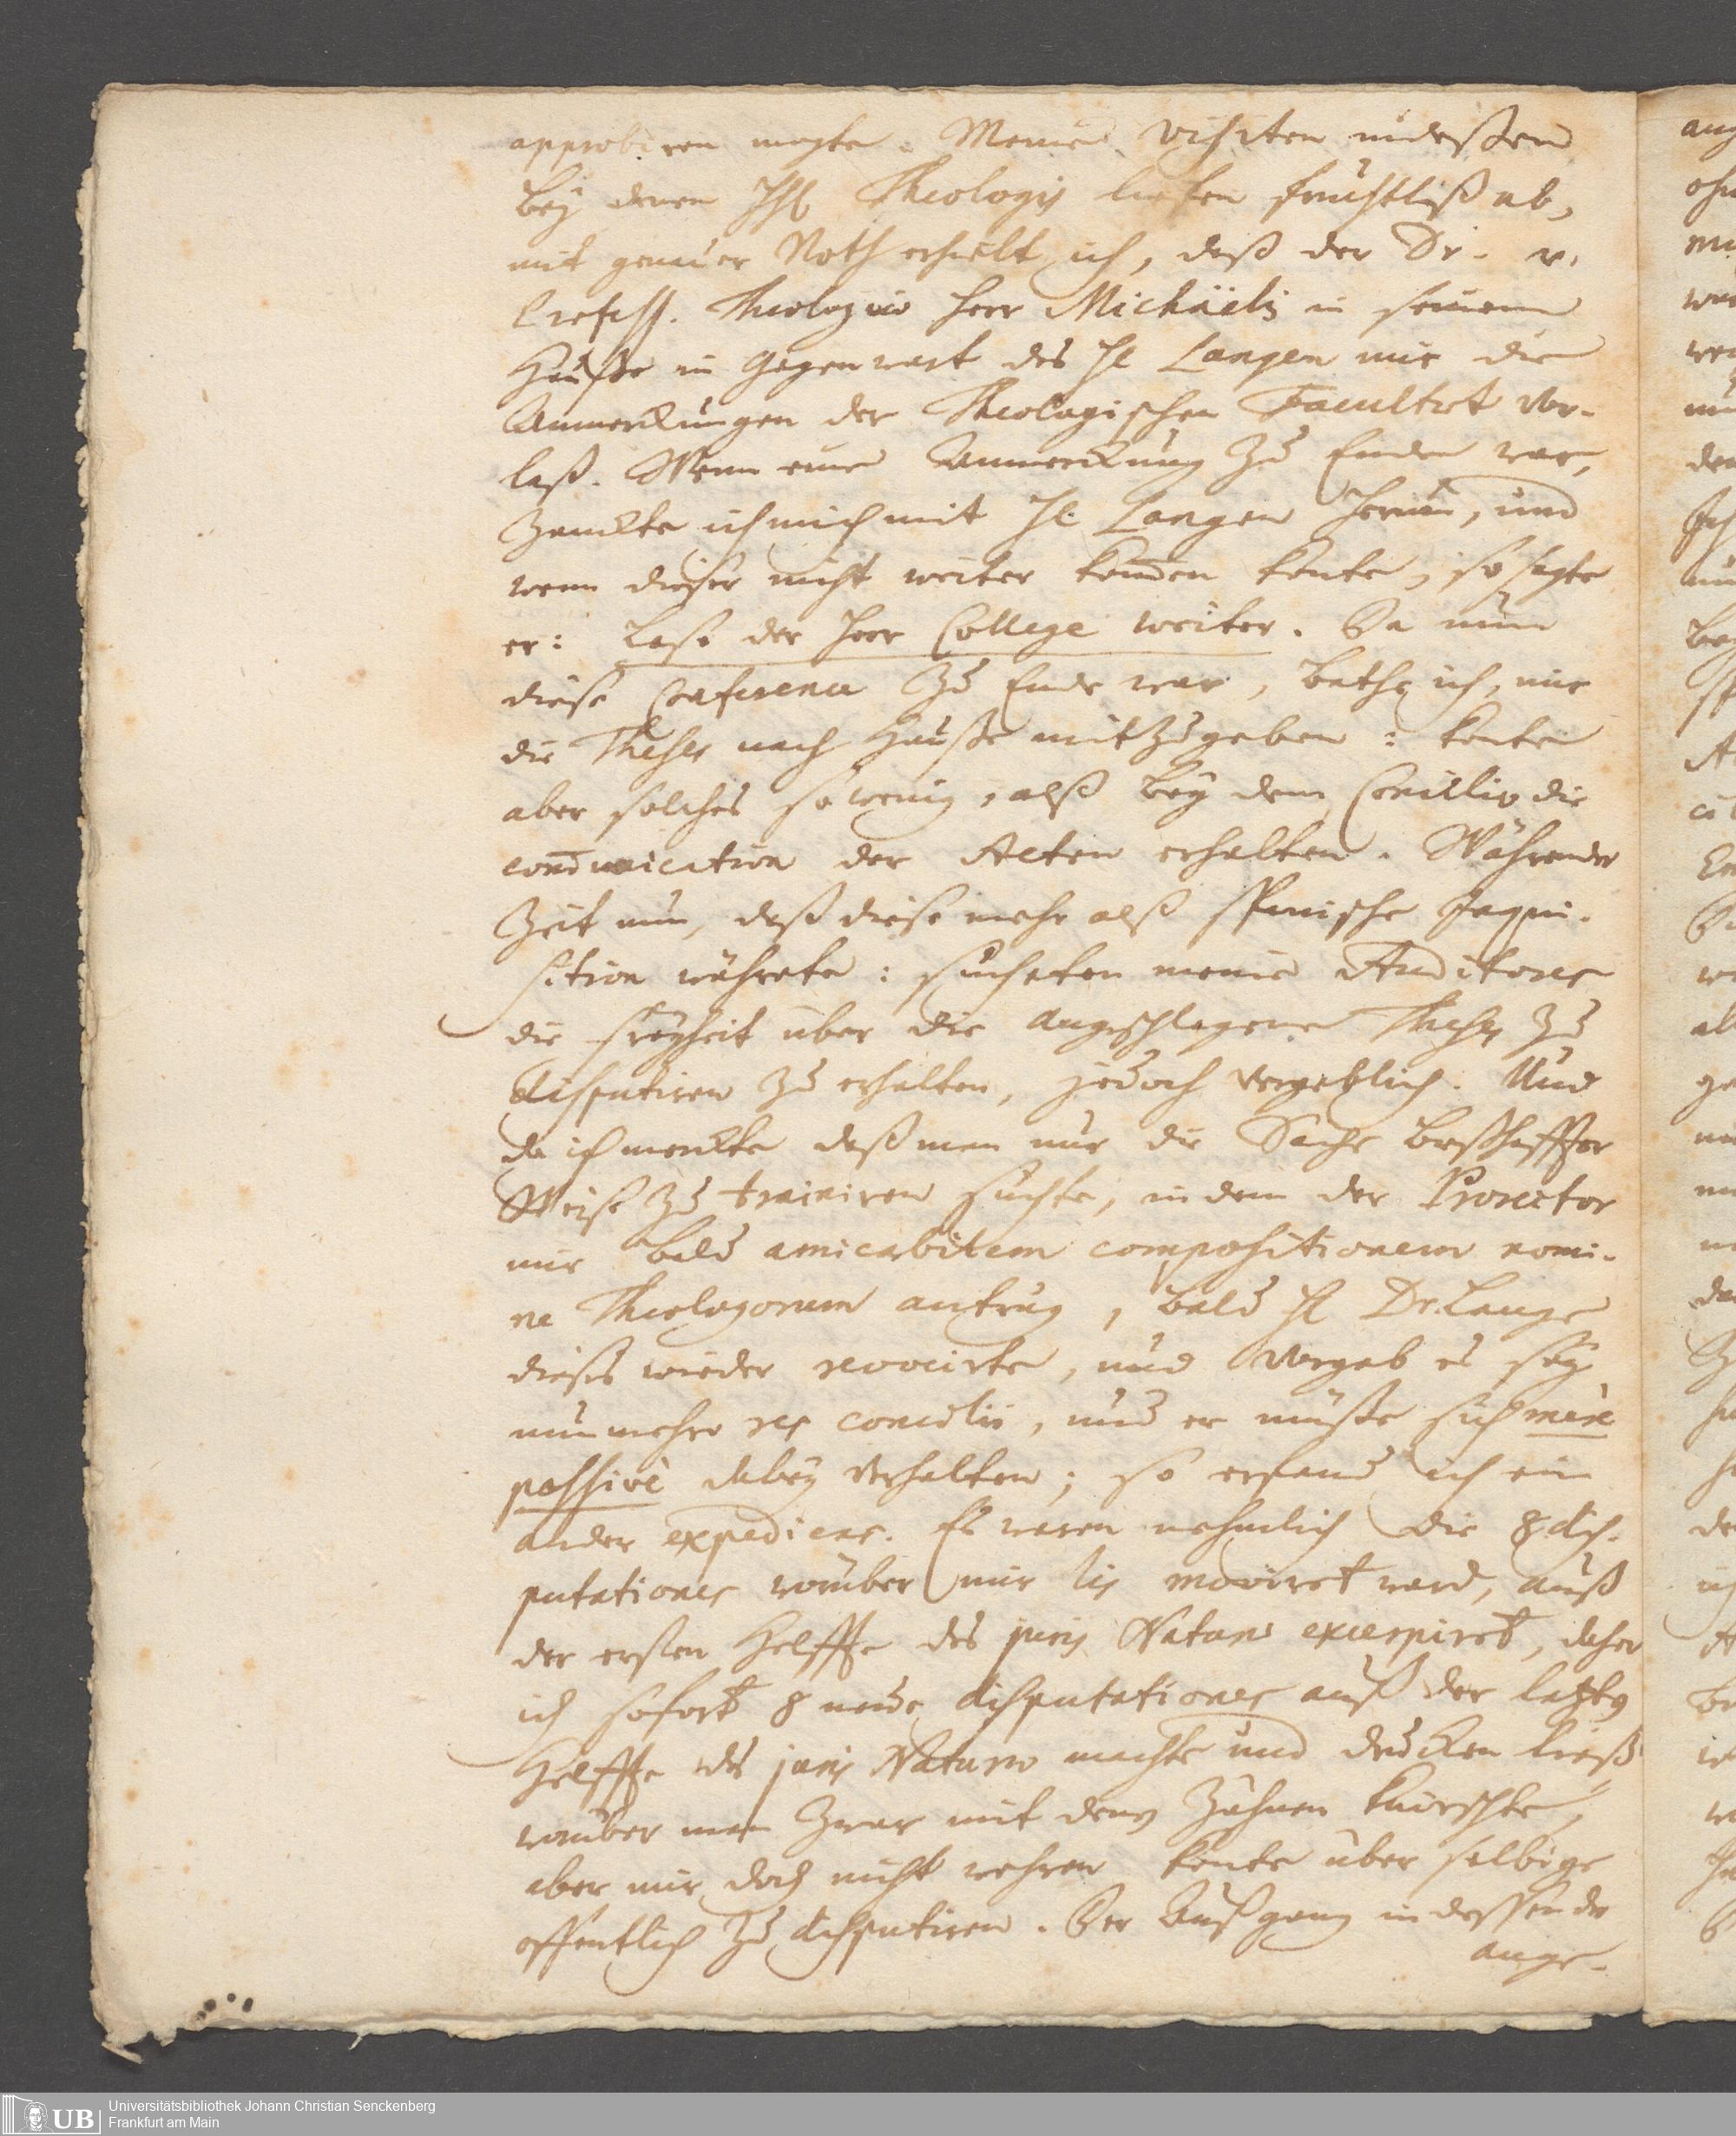 approbiren mogte. Meine visiten indeßen
bey denen HH. Theologis liefen fruchtloß ab,
mit genauer Noth erhielt ich, daß der Dr. u.
Profess. Theologiae Herr Michäelis in seinem
Hauße in Gegenwart des H. Langen mir die
Anmerckungen der Theologischen Facultæt vor-
laß. Wenn eine Anmerckung zu Ende war,
zanckte ich mich mit H. Langen herum, und
wenn dieser nicht weiter kom̄en konte, so sagte
er: Lese der Herr College weiter. Da nun
diese Conference zu Ende war, bathe ich, mir
die Theses nach Hauße mitzugeben: konte
aber solches so wenig, alß bey dem Concilio die
com̄unication der Acten erhalten. Während der
Zeit nun, daß diese mehr alß spanische Inqui-
sition währete: sucheten meine Auditores
die Freyheit über die angeschlagene Theses zu
disputiren zu erhalten, jedoch vergeblich. Und
da ich merckte daß man nur die Sache
Weise zu trainiren suchte, in dem der Prorector
mir bald amicabilem compositionem nomi-
ne Theologorum antrug, bald H. Dr. Lange
dieses wieder revocirte, und vorgab es sey
nunmehro res concilii, und er müße sich mere
passivè dabey verhalten; so erfand ich ein
ander expediens. Es waren nehmlich die 8 dis-
putationes worüber mir lis moviret ward, auß
der ersten Helffte des juris Naturae excerpiret, daher
ich sofort 8 neue disputationes auß der letzten
Helffte des juris Naturae machte und drucken ließ
worüber man zwar mit denen Zähnen knirschte,
aber mir doch nicht wehren konte über selbige
offentlich zu disputiren. Der Außgang indessen der
ange-
Universitätsbibliothek Johann Christian Senckenberg
Frankfurt am Main
UB